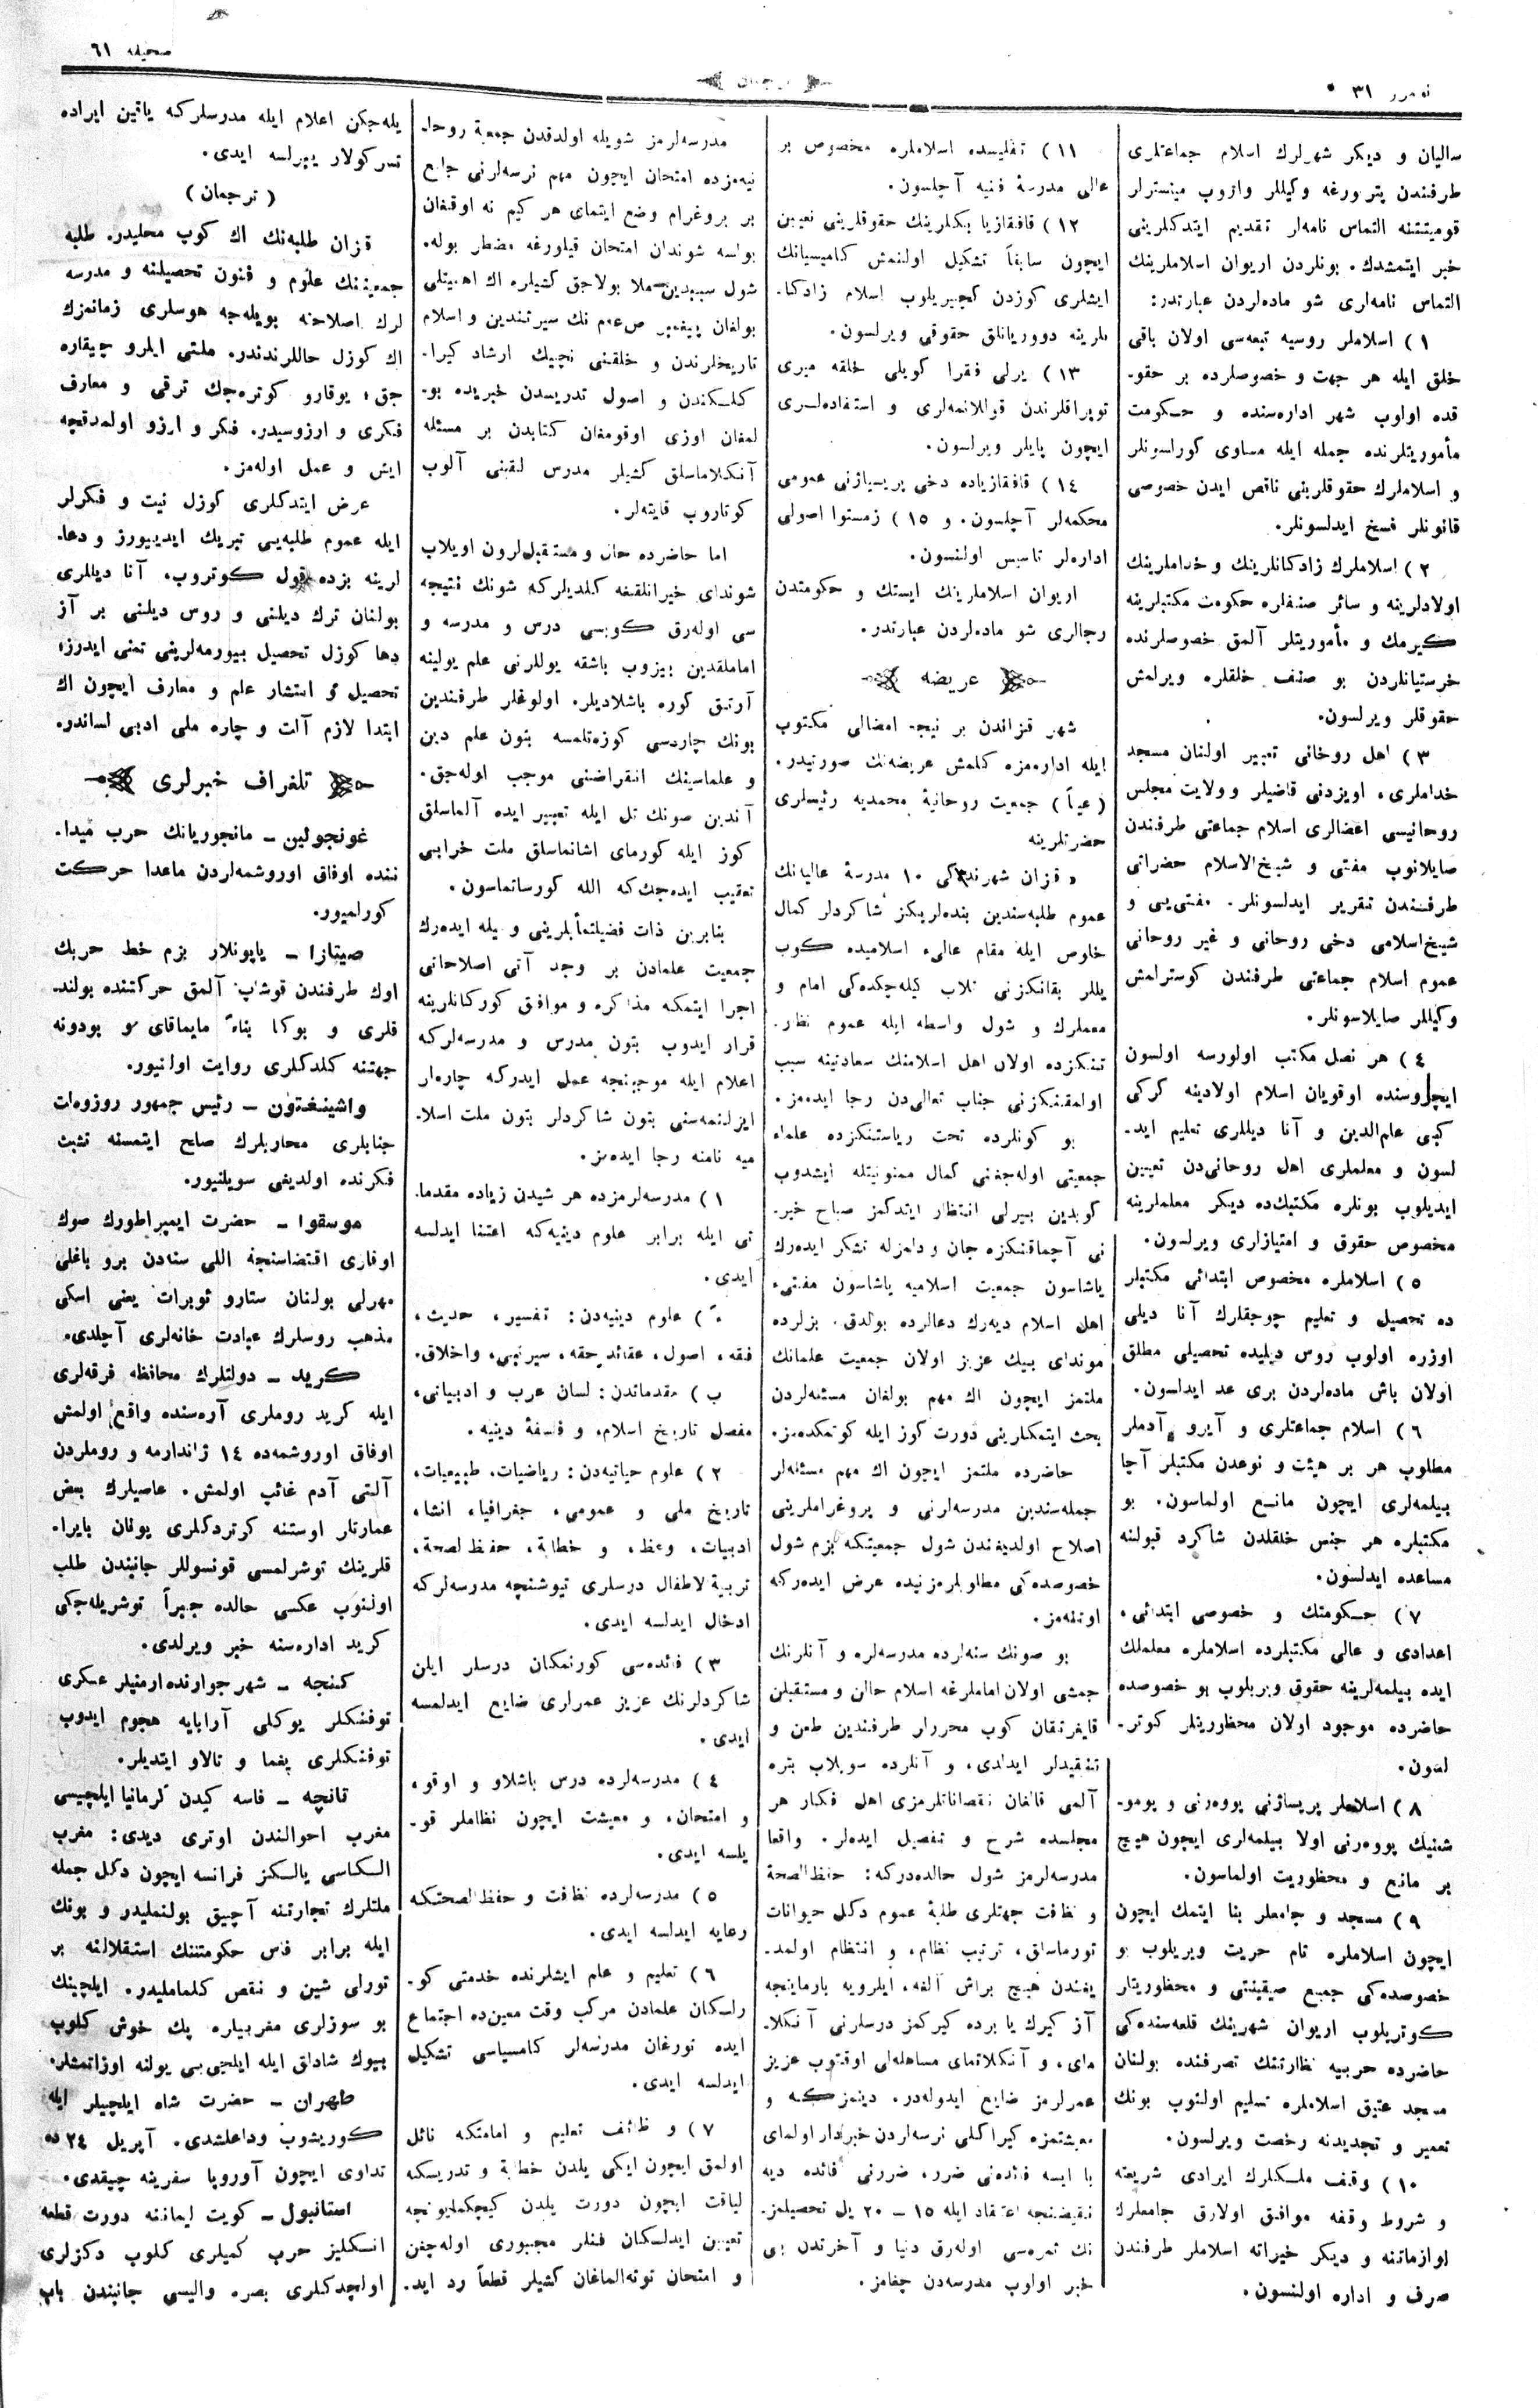 صحیفه ٦١
ترجمان
نومرو ٣١
سالیان و دیگر شهرلرك اسلام جماعتلری
طرفندن پترورغه وکیللر واروب مینسترلر
قومیتتنه التماس نامه‌لر تقدیم ایتدکلرینی
خبر ایتمشدك. بونلردن اریوان اسلاملرینك
التماس نامه‌لری شو ماده‌لردن عبارتدر:
١) اسلاملر روسیه تبعه‌سی اولان باقی
خلق ایله هر جهت و خصوصلرده بر حقو-
قده اولوب شهر اداره‌سنده و حکومت
مأموریتلرنده جمله ایله مساوی کورلسونلر
و اسلاملرك حقوقلرینی ناقص ایدن خصوصی
قانونلر فسخ ایدلسونلر.
٢) اسلاملرك زادکانلرینك و خداملرینك
اولادلرینه و سائر صنفلره حکومت مکتبلرینه
کیرمك و مأموریتلر آلمق خصوصلرنده
خرستیانلردن بو صنف خلقلره ویرلمش
حقوقلر ویرلسون.
٣) اهل روحانی تعبیر اولنان مسجد
خداملری، اویزدنی قاضیلر و ولایت مجلس
روحانیسی اعضالری اسلام جماعتی طرفندن
صایلانوب مفتی و شیخ‌الاسلام حضراتی
طرفندن تقریر ایدلسونلر. مفتی‌یی و
شیخ‌اسلامی دخی روحانی و غیر روحانی
عموم اسلام جماعتی طرفندن کوسترلمش
وکیللر صایلاسونلر.
٤) هر نصل مکتب اولورسه اولسون
ایچلروسنده اوقویان اسلام اولادینه کرکی
کبی علم‌الدین و آنا دیللری تعلیم اید-
لسون و معلملری اهل روحانی‌دن تعیین
ایدیلوب بونلره مکتبك‌ده دیگر معلملرینه
مخصوص حقوق و امتیازلری ویرلسون.
٥) اسلاملره مخصوص ابتدائی مکتبلر
ده تحصیل و تعلیم چوجقلرك آنا دیلی
اوزره اولوب روس دیلیده تحصیلی مطلق
اولان باش ماده‌لردن بری عد ایدلسون.
٦) اسلام جماعتلری و آیرو آدملر
مطلوب هر بر هیئت و نوعدن مکتبلر آچا
بیلمه‌لری ایچون مانع اولماسون. بو
مکتبلره هر جنس خلقلدن شاکرد قبولنه
مساعده ایدلسون.
٧) حکومتك و خصوصی ابتدائی،
اعدادی و عالی مکتبلرده اسلاملره معلملك
ایده بیلمه‌لرینه حقوق ویریلوب بو خصوصده
حاضرده موجود اولان محظوریتلر کوتر-
لسون.
٨) اسلاملر پریساژنی پووه‌رنی و پومو-
شنیك پووه‌رنی اولا بیلمه‌لری ایچون هیچ
بر مانع و محظوریت اولماسون.
٩) مسجد و جامعلر بنا ایتمك ایچون
ایچون اسلاملره تام حریت ویریلوب بو
خصوصده‌کی جمیع صیقینتی و محظوریتلر
کوتریلوب اریوان شهرینك قلعه‌سنده‌کی
حاضرده حربیه نظارتنك تصرفنده بولنان
مسجد عتیق اسلاملره تسلیم اولنوب بونك
تعمیر و تجدیدنه رخصت ویرلسون.
١٠) وقف ملکلرك ایرادی شریعته
و شروط وقفه موافق اولارق جامعلرك
لوازماتنه و دیگر خیراته اسلاملر طرفندن
صرف و اداره اولنسون.
١١) تفلیسده اسلاملره مخصوص بر
عالی مدرسهٔ فنیه آچلسون.
١٢) قافقازیا بکلرینك حقوقلرینی تعیین
ایچون سابقاً تشکیل اولنمش کامیسیانك
ایشلری کوزدن کچیریلوب اسلام زادکا-
نلرینه دووریانلق حقوقی ویرلسون.
١٣) یرلی فقرا کویلی خلقه میری
توپراقلرندن قوللانمه‌لری و استفاده‌لری
ایچون پایلر ویرلسون.
١٤) قافقازیاده دخی پریسیاژنی عمومی
محکمه‌لر آچلسون. و ١٥) زمستوا اصولی
اداره‌لر تاسیس اولنسون.
اریوان اسلاملرینك ایستك و حکومتدن
رجالری شو ماده‌لردن عبارتدر.
عریضه
شهر قزاندن بر نیچه امضالی مکتوب
ایله اداره‌مزه کلمش عریضه‌نك صورتیدر.
(عیناً) جمعیت روحانیهٔ محمدیه رئیسلری
حضرتلرینه
« قزان شهرنده‌کی ١٠ مدرسهٔ عالیانك
عموم طلبه‌سندین بنده‌لریکز شاکردلر کمال
خلوص ایله مقام عالیء اسلامیده کوب
یللر بقانکزنی تلاب کیله‌چکده‌کی امام و
معلملرك و شول واسطه ایله عموم نظار-
تنکزده اولان اهل اسلامنك سعادتینه سبب
اولمقنکزنی جناب تعالی‌دن رجا ایده‌مز.
بو کونلرده تحت ریاستنکزده علماء
جمعیتی اوله‌جغنی کمال ممنونیتله ایشدوب
کوبدین بیرلی انتظار ایتدکمز صباح خبر-
نی آچماقنکزه جان و دلمزله تشکر ایده‌رك
یاشاسون جمعیت اسلامیه یاشاسون مفتیء
اهل اسلام دیه‌رك دعالرده بولدق. بزلرده
موندای بیك عزیز اولان جمعیت علمانك
ملتمز ایچون اك مهم بولغان مسئله‌لردن
بحث ایتمکلرینی دورت کوز ایله کوتمکده‌مز.
حاضرده ملتمز ایچون اك مهم مسئله‌لر
جمله‌سندین مدرسه‌لرنی و پروغراملرینی
اصلاح اولدیغندن شول جمعیتکه بزم شول
خصوصده‌کی مطلوبلرمزنیده عرض ایده‌رکه
اوتنه‌مز.
بو صونك سنه‌لرده مدرسه‌لره و آنلرنك
جمشی اولان اماملرغه اسلام حالن و مستقبلن
قایغرتقان کوب محررلر طرفندین طعن و
تنقیدلر ایدلدی، و آنلرده سویلاب بتره
آلمی قالغان نقصاناتلرمزی اهل فکار هر
مجلسده شرح و تفصیل ایده‌لر. واقعا
مدرسه‌لرمز شول حالده‌درکه: حفظ‌الصحة
و نظافت جهتلری طلبهٔ عموم دکل حیوانات
تورماسلق، ترتیب نظام، و انتظام اولمد-
یغندن هیچ براش آلغه، ایلرویه بارماینچه
آز کیرك یا برده کیرکمز درسلرنی آنکلا-
مای، و آنکلاتمای مساهله‌لی اوقتوب عزیز
عمرلرمز ضایع ایدوله‌در. دینمزکه و
معیشتمزه کیراکلی نرسه‌لردن خبردار اولمای
یا ایسه فائده‌نی ضرر، ضررنی فائده دیه
نقیضنجه اعتقاد ایله ١٥ – ٢٠ یل تحصیلمز-
نك ثمره‌سی اوله‌رق دنیا و آخرتدن بی
خبر اولوب مدرسه‌دن چقامز.
مدرسه‌لرمز شویله اولدقدن جمعیة روحا-
نیه‌مزده امتحان ایچون مهم نرسه‌لرنی جامع
بر پروغرام وضع ایتمای هر کیم نه اوقغان
بولسه شوندان امتحان قیلورغه مضطر بوله.
شول سببدین ملا بولاجق کشیلره اك اهمیتلی
بولغان پیغمبر ص‌عم نك سیرتندین و اسلام
تاریخلرندن و خلقنی نیچیك ارشاد کیرا-
کلکندن و اصول تدریسدن خبریده بو-
لمغان اوزی اوقومغان کتابدن بر مسئله
آنکلاماسلق کشیلر مدرس لقبنی آلوب
کوتاروب قایته‌لر.
اما حاضرده حال و مستقبل‌لرون اویلاب
شوندای خیرانلقغه کلدیلرکه شونك نتیجه
سی اوله‌رق کوبسی درس و مدرسه و
اماملقدین بیزوب باشقه یوللرنی علم یولینه
آرتق کوره باشلادیلر. اولوغلر طرفندین
بونك چاردسی کوزه‌تلمسه بتون علم دین
و علماسینك انقراضنی موجب اوله‌جق.
آندین صونك تل ایله تعبیر ایده آلماسلق
کوز ایله کورمای اشانماسلق ملت خرابی
تعقیب ایده‌جك‌که الله کورساتماسون.
بنابرین ذات فضیلتمأبلرینی وسیله ایده‌رك
جمعیت علمادن بر وجه آتی اصلاحاتی
اجرا ایتمکه مذاکره و موافق کورکانلرینه
قرار ایدوب بتون مدرس و مدرسه‌لرکه
اعلام ایله موجبنچه عمل ایدرکه چاره‌لر
ایزلنمه‌سنی بتون شاکردلر بتون ملت اسلا-
میه نامنه رجا ایده‌مز.
١) مدرسه‌لرمزده هر شیدن زیاده مقدما-
تی ایله برابر علوم دینیه‌که اعتنا ایدلسه
ایدی.
آ) علوم دینیه‌دن: تفسیر، حدیث،
فقه، اصول، عقائد حقه، سیر نبی، واخلاق.
ب) مقدماتدن: لسان عرب و ادبیاتی،
مفصل تاریخ اسلام، و فلسفهٔ دینیه.
٢) علوم حیاتیه‌دن: ریاضیات، طبیعیات،
تاریخ ملی و عمومی، جغرافیا، انشاء،
ادبیات، وعظ، و خطابة، حفظ‌لصحة،
تربیة لاطفال درسلری تیوشنچه مدرسه‌لرکه
ادخال ایدلسه ایدی.
٣) فائده‌سی کورنمکان درسلر ایلن
شاکردلرنك عزیز عمرلری ضایع ایدلمسه
ایدی.
٤) مدرسه‌لرده درس باشلاو و اوقو،
و امتحان، و معیشت ایچون نظاملر قو-
یلسه ایدی.
٥) مدرسه‌لرده نظافت و حفظ‌الصحتکه
رعایه ایدلسه ایدی.
٦) تعلیم و علم ایشلرنده خدمتی کو-
رلکان علمادن مرکب وقت معین‌ده اجتماع
ایده تورغان مدرسه‌لر کامسیاسی تشکیل
ایدلسه ایدی.
٧) وظائف تعلیم و امامتکه نائل
اولمق ایچون ایکی یلدن خطابة و تدریسکه
لیاقت ایچون دورت یلدن کیچکمایونچه
تعیین ایدلکان فنلر مجبوری اوله‌چغن
و امتحان توته‌الماغان کشیلر قطعاً رد اید-
یله‌جکن اعلام ایله مدرسلرکه یاقین ایراده
تسرکولار ییرلسه ایدی.
(ترجمان)
قزان طلبه‌نك اك کوپ محلیدر. طلبه
جمعیتنك علوم و فنون تحصیلنه و مدرسه
لرك اصلاحنه بویله‌جه هوسلری زمانمزك
اك کوزل حاللرندندر. ملتی ایلرو چیقاره
جق؛ یوقارو کوتره‌جك ترقی و معارف
فکری و ارزوسیدر. فکر و ارزو اولمدقچه
ایش و عمل اوله‌مز.
عرض ایتدکلری کوزل نیت و فکرلر
ایله عموم طلبه‌یی تبریك ایدییورز و دعا-
لرینه بزده قول کوتروب، آنا دیللری
بولنان ترك دیلنی و روس دیلنی بر آز
دها کوزل تحصیل بیورمه‌لرینی تمنی ایدرز؛
تحصیل و انتشار علم و معارف ایچون اك
ابتدا لازم آلت و چاره ملی ادبی لساندر.
تلغراف خبرلری
غونجولین – مانجوریانك حرب میدا-
ننده اوفاق اوروشمه‌لردن ماعدا حرکت
کورلمیور.
صیپنازا – یاپونلار بزم خط حربك
اوك طرفندن قوشاب آلمق حرکتنده بولند-
قلری و بوکا بناءً مایماقای سو بودونه
جهتنه کلدکلری روایت اولنیور.
واشینغتون – رئیس جمهور روزوه‌لت
جنابلری محاربلرك صلح ایتمسنه تشبث
فکرنده اولدیغی سویلنیور.
موسقوا – حضرت ایمپراطورك صوك
اوقازی اقتضاسنجه اللی سنه‌دن برو باغلی
مهرلی بولنان ستارو ئوبرات یعنی اسکی
مذهب روسلرك عبادت خانه‌لری آچلدی.
کرید – دولتلرك محافظه فرقه‌لری
ایله کرید روملری آره‌سنده واقع اولمش
اوفاق اوروشمه‌ده ١٤ ژاندارمه و روملردن
آلتی آدم غائب اولمش. عاصیلرك بعض
عمارتلر اوستنه کرتردکلری یونان بایرا-
قلرینك توشرلمسی قونسوللر جانبندن طلب
اولنوب عکسی حالده جبراً توشریله‌جکی
کرید اداره‌سنه خبر ویرلدی.
کنجه – شهر جوارنده ارمنیلر عسکری
توفنکلر یوکلی آرابایه هجوم ایدوب
توفنکلری یغما و تالاو ایتدیلر.
تانجه – فاسه کیدن گرمانیا ایلچیسی
مغرب احوالندن اوتری دیدی: مغرب
الکاسی یالکز فرانسه ایچون دکل جمله
ملتلرك تجارتنه آچیق بولنملیدر و بونك
ایله برابر فاس حکومتنك استقلالنه بر
تورلی شین و نقص کلمامایدر. ایلچینك
بو سوزلری مغربیلره پك خوش کلوب
بیوك شادلق ایله ایلچی‌یی یولنه اوزاتمشلر.
طهران – حضرت شاه ایلچیلر ایله
کوریشوب وداعلشدی. آپریل ٢٤ ده
تداوی ایچون آوروپا سفرینه چیقدی.
استانبول – کویت لیماننه دورت قطعه
انکلیز حرب کمیلری کلوب دکزلری
اولچدکلری بصره والیسی جانبندن باب